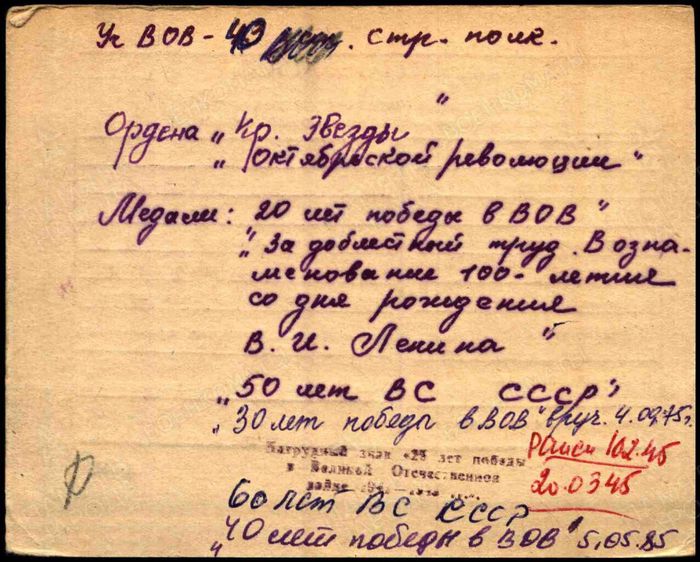 Уч ВОВ - 43 стр. полк.
Ордена „Кр. Звезды"
„Октябрьской революции"
Медали: 20 лет победы в ВОВ"
„За доблестный труд. В озна-
менование 100-летия
со дня рождения
В. И. Ленина"
„50 лет ВС СССР"
„30 лет победы в ВОВ" вруч. 4.09.75г.
Нагрудный знак «25 лет победы
в Великой Отечественной
войне
Ранен 10.2.45
20.03.45
60 лет ВС СССР
„40 лет победы в ВОВ" 5.05.85